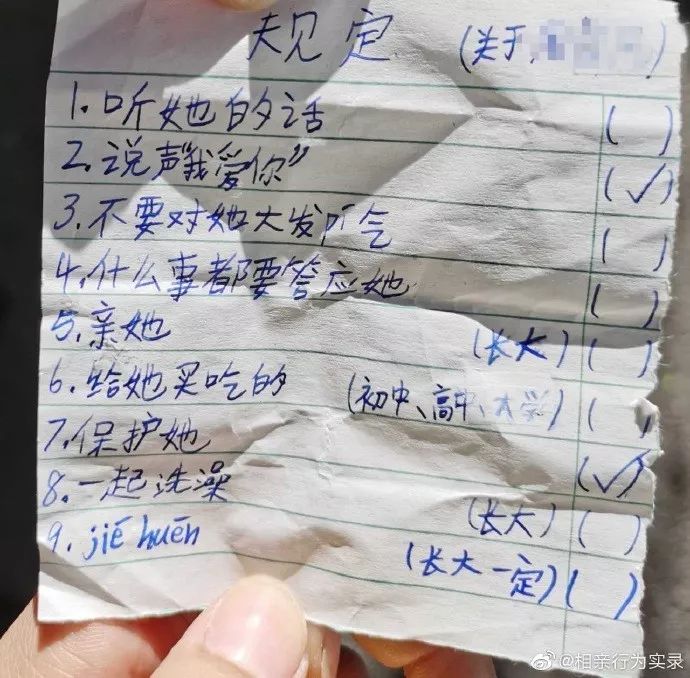 规定 (关于
1. 听她的话 ( )
2. 说声"我爱你" (✓)
3. 不要对她大发脾气 ( )
4. 什么事都要答应她 ( )
5. 亲她 (长大) ( )
6. 给她买吃的 (初中、高中、大学) ( )
7. 保护她 (✓)
8. 一起洗澡 (长大) ( )
9. jiē huēn (长大一定) ( )
@相亲行为实录